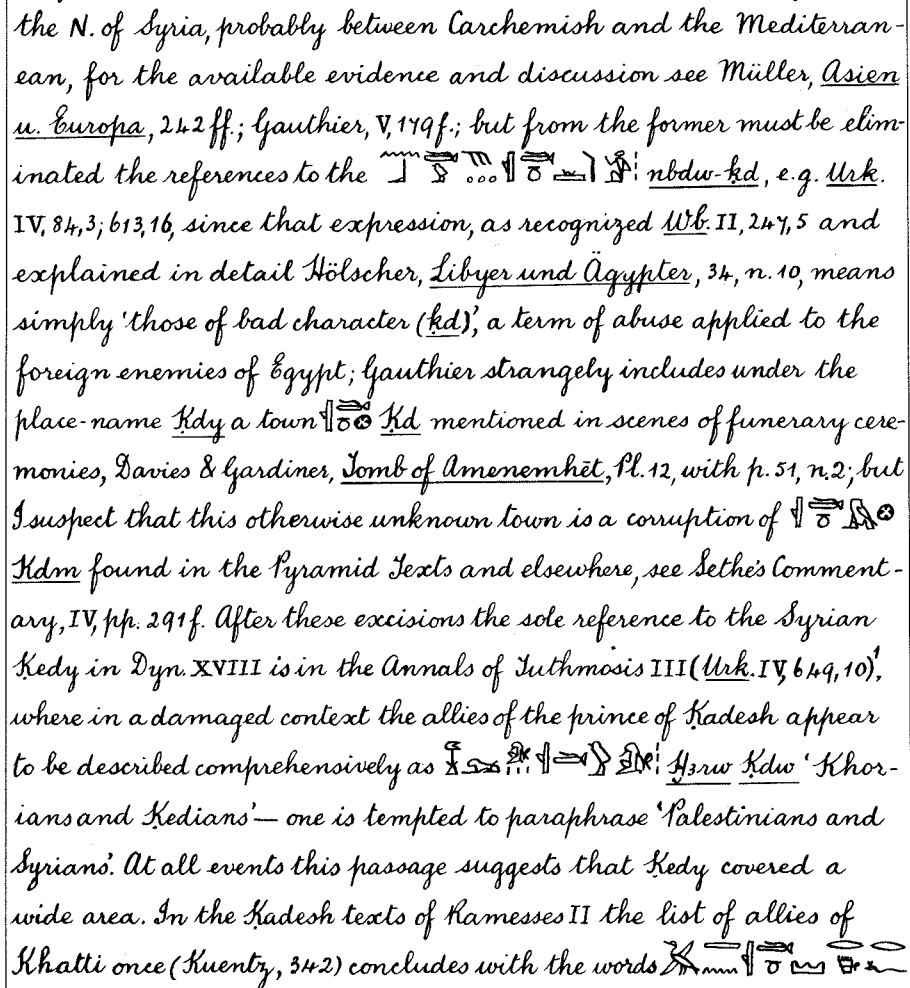 the N. of Syria, probably between Carchemish and the Mediterran-
ean, for the available evidence and discussion see Müller, Asien
u. Europa, 242 ff.; Gauthier, V, 179 f.; but from the former must be elim-
inated the references to the nbdw-ḳd, e.g. Urk.
IV, 84,3; 613,16, since that expression, as recognized Wb. II, 247,5 and
explained in detail Hölscher, Libyer und Ägypter, 34, n. 10, means
simply ‘those of bad character (ḳd)’, a term of abuse applied to the
foreign enemies of Egypt; Gauthier strangely includes under the
place-name Ḳdy a town Ḳd mentioned in scenes of funerary cere-
monies, Davies & Gardiner, Tomb of Amenemhēt, Pl. 12, with p. 51, n. 2; but
I suspect that this otherwise unknown town is a corruption of
Ḳdm found in the Pyramid Texts and elsewhere, see Sethe's Comment-
ary, IV, pp. 291 f. After these excisions the sole reference to the Syrian
Ḳedy in Dyn. XVIII is in the Annals of Tuthmosis III (Urk. IV, 649, 10)¹,
where in a damaged context the allies of the prince of Ḳadesh appear
to be described comprehensively as Ḫꜣrw Ḳdw ‘Khor-
ians and Ḳedians’ — one is tempted to paraphrase ‘Palestinians and
Syrians’. At all events this passage suggests that Ḳedy covered a
wide area. In the Ḳadesh texts of Ramesses II the list of allies of
Khatti once (Kuentz, 342) concludes with the words